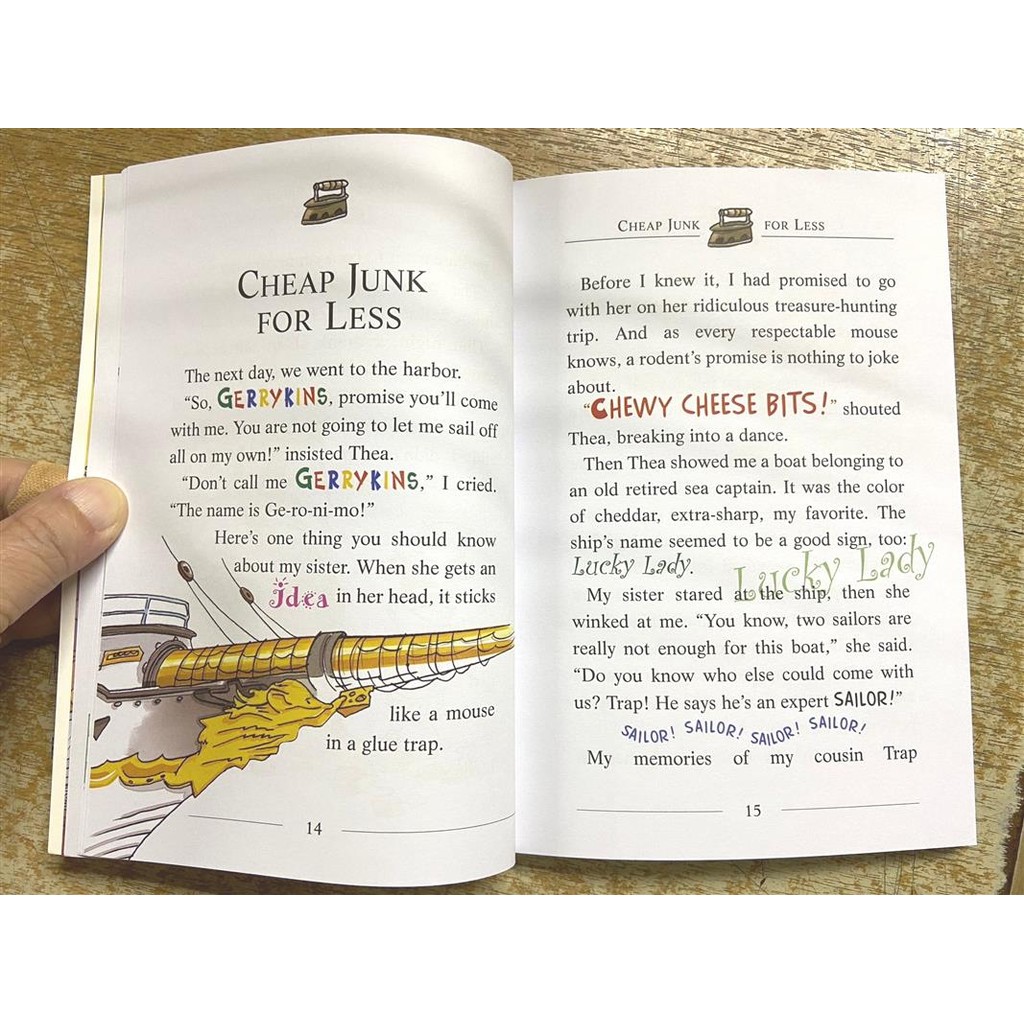 CHEAP JUNK
FOR LESS
The next day, we went to the harbor.
“So, GERRYKINS, promise you’ll come
with me. You are not going to let me sail off
all on my own!” insisted Thea.
“Don’t call me GERRYKINS,” I cried.
“The name is Ge-ro-ni-mo!”
Here’s one thing you should know
about my sister. When she gets an
idea in her head, it sticks
like a mouse
in a glue trap.
14
CHEAP JUNK FOR LESS
Before I knew it, I had promised to go
with her on her ridiculous treasure-hunting
trip. And as every respectable mouse
knows, a rodent’s promise is nothing to joke
about.
“CHEWY CHEESE BITS!” shouted
Thea, breaking into a dance.
Then Thea showed me a boat belonging to
an old retired sea captain. It was the color
of cheddar, extra-sharp, my favorite. The
ship’s name seemed to be a good sign, too:
Lucky Lady. Lucky Lady
My sister stared at the ship, then she
winked at me. “You know, two sailors are
really not enough for this boat,” she said.
“Do you know who else could come with
us? Trap! He says he’s an expert SAILOR!”
SAILOR! SAILOR! SAILOR! SAILOR!
My memories of my cousin Trap
15